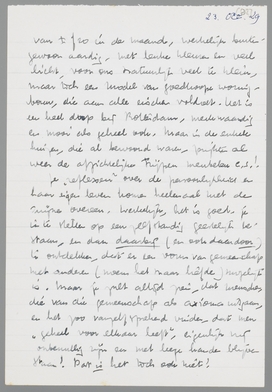 23. Oct. 29
van ± f 20 in de maand, werkelijk buiten-
gewoon aardig, met leuke kleuren en veel
licht, voor ons natuurlijk veel te klein,
maar toch een model van goedkoope woning-
bouw, die aan alle eischen voldoet. Het is
een heel dorp bij Rotterdam, merkwaardig
en mooi als geheel ook. Maar in de enkele
huizen, die al bewoond waren, prijkten al
weer de afschuwelijke Trijpen meubelen e.d.!
Je over de persoonlijkheid en
haar eigen leven komt heelemaal met de
mijne overeen. Werkelijk, het is goed je
in te stellen op een zelfstandig geestelijk be-
staan, en dan daarbij (en ook daardoor)
te ontdekken, dat er een vorm van gemeenschap
met anderen (noem het maar liefde) mogelijk
is. Maar je zult altijd zien, dat menschen,
die van die gemeenschap als axioma uitgaan,
en het zoo vanzelfsprekend vinden, dat men
„geheel voor elkaar leeft", eigenlijk erg
zijn en met leege handen blijven
staan! Dat is het toch ook niet!